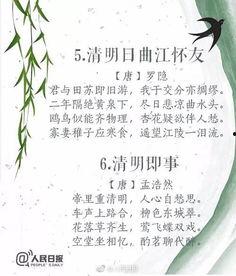 5.清明日曲江怀友
【唐】罗隐
君与田苏即旧游，我于交分亦绸缪。
二年隔绝黄泉下，尽日悲凉曲水头。
鸥鸟似能齐物理，杏花疑欲伴人愁。
寡妻稚子应寒食，遥望江陵一泪流。
6.清明即事
【唐】孟浩然
帝里重清明，人心自愁思。
车声上路合，柳色东城翠。
花落草齐生，莺飞蝶双戏。
空堂坐相忆，酌茗聊代醉。
@人民日报
PEOPLE'S DAILY